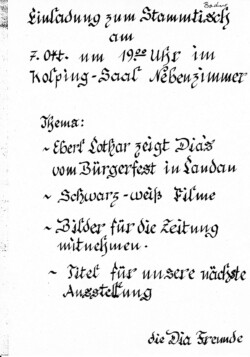 Einladung zum Stammtisch
am
7. Okt. um 19⁰⁰ Uhr im
Kolping-Saal Nebenzimmer
Thema:
~ Eberl Lothar zeigt Dia's
vom Bürgerfest in Landau
~ Schwarz-weiß Filme
~ Bilder für die Zeitung
mitnehmen.
~ Titel für unsere nächste
Ausstellung
die Dia Freunde